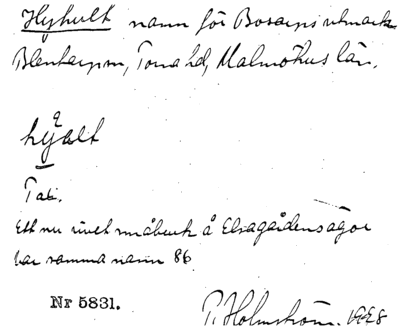 Hyhult namn för Bosarps utmark
Blentarpsn, Torna hd, Malmöhus län.
hyalt
Tab.
Ett nu rivet småbruk å Elsagårdens ägor
har samma namn 86
Nr 5831.
P. Holmström. 1928